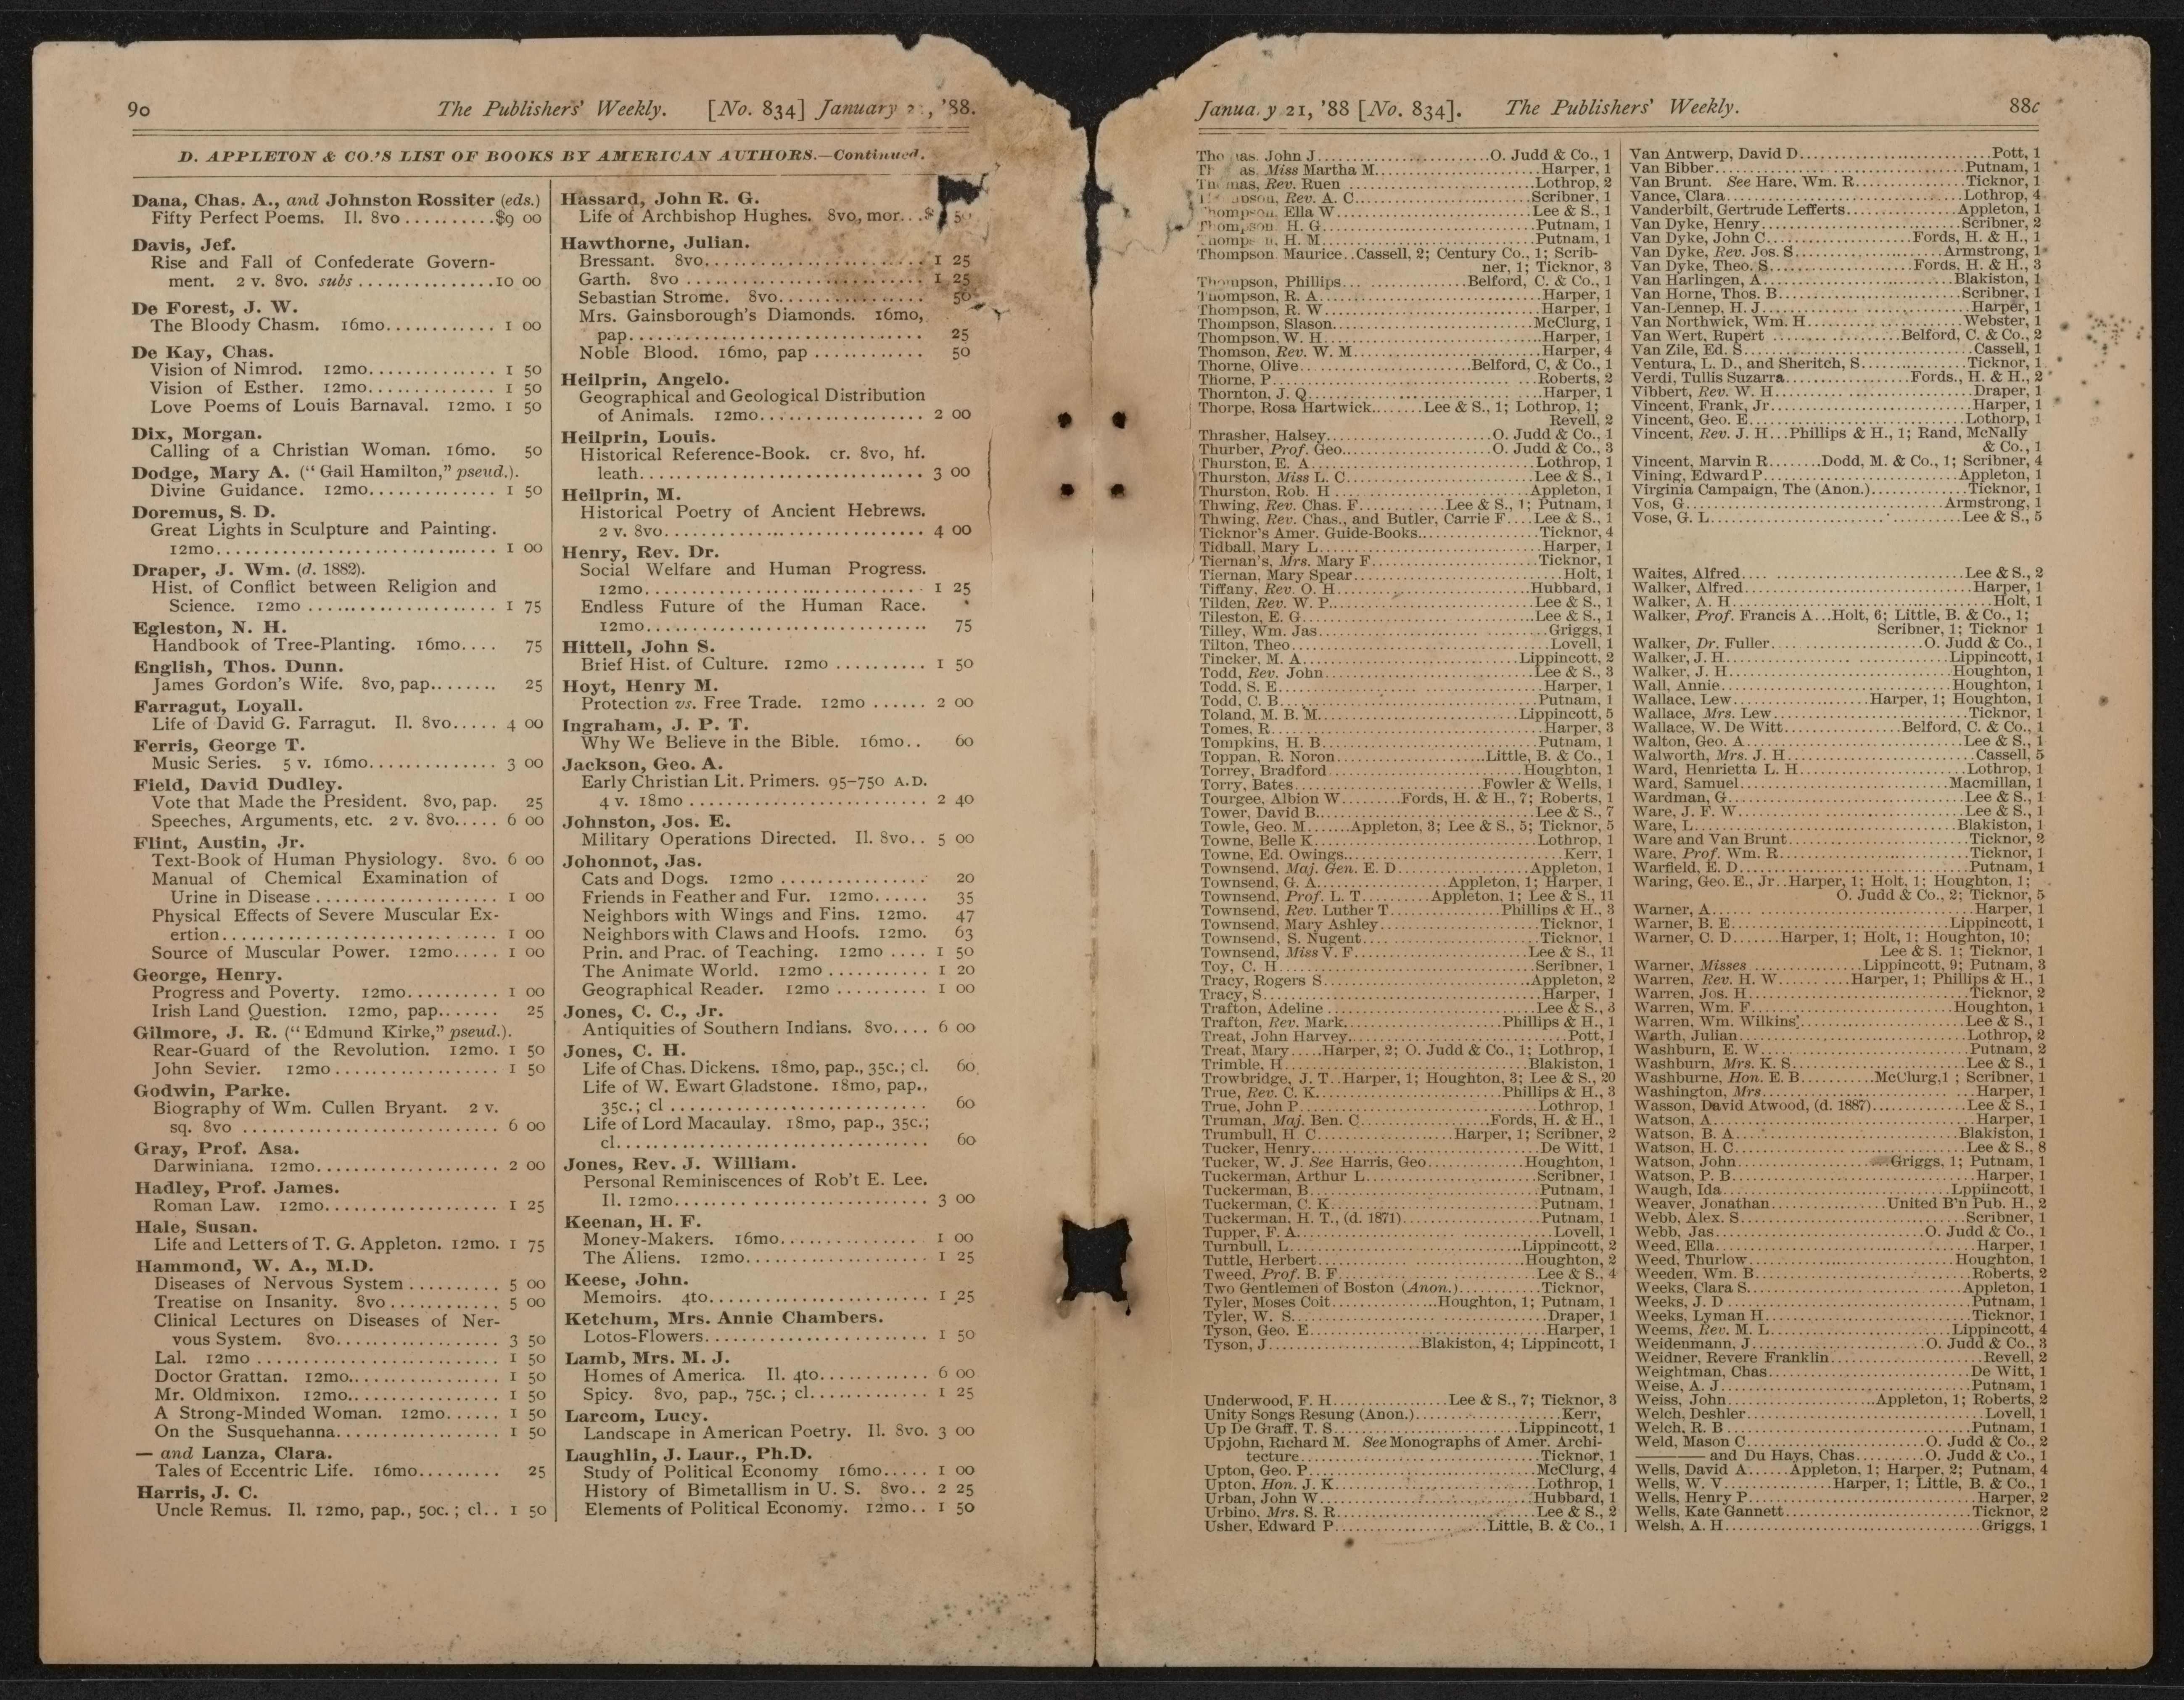 90 The Publishers' Weekly. [No. 834] January 2 , '88.
D. APPLETON & CO.'S LIST OF BOOKS BY AMERICAN AUTHORS.—Continued.
Dana, Chas. A., and Johnston Rossiter (eds.)
Fifty Perfect Poems. Il. 8vo..........$9 00
Davis, Jef.
Rise and Fall of Confederate Govern-
ment. 2 v. 8vo. subs..............10 00
De Forest, J. W.
The Bloody Chasm. 16mo............ 1 00
De Kay, Chas.
Vision of Nimrod. 12mo.............. 1 50
Vision of Esther. 12mo.............. 1 50
Love Poems of Louis Barnaval. 12mo. 1 50
Dix, Morgan.
Calling of a Christian Woman. 16mo. 50
Dodge, Mary A. ("Gail Hamilton," pseud.).
Divine Guidance. 12mo.............. 1 50
Doremus, S. D.
Great Lights in Sculpture and Painting.
12mo............................. 1 00
Draper, J. Wm. (d. 1882).
Hist. of Conflict between Religion and
Science. 12mo ................... 1 75
Egleston, N. H.
Handbook of Tree-Planting. 16mo.... 75
English, Thos. Dunn.
James Gordon's Wife. 8vo, pap........ 25
Farragut, Loyall.
Life of David G. Farragut. Il. 8vo..... 4 00
Ferris, George T.
Music Series. 5 v. 16mo............. 3 00
Field, David Dudley.
Vote that Made the President. 8vo, pap. 25
Speeches, Arguments, etc. 2 v. 8vo..... 6 00
Flint, Austin, Jr.
Text-Book of Human Physiology. 8vo. 6 00
Manual of Chemical Examination of
Urine in Disease................... 1 00
Physical Effects of Severe Muscular Ex-
ertion............................ 1 00
Source of Muscular Power. 12mo..... 1 00
George, Henry.
Progress and Poverty. 12mo.......... 1 00
Irish Land Question. 12mo, pap....... 25
Gilmore, J. R. ("Edmund Kirke," pseud.).
Rear-Guard of the Revolution. 12mo. 1 50
John Sevier. 12mo................. 1 50
Godwin, Parke.
Biography of Wm. Cullen Bryant. 2 v.
sq. 8vo .......................... 6 00
Gray, Prof. Asa.
Darwiniana. 12mo................... 2 00
Hadley, Prof. James.
Roman Law. 12mo.................. 1 25
Hale, Susan.
Life and Letters of T. G. Appleton. 12mo. 1 75
Hammond, W. A., M.D.
Diseases of Nervous System.......... 5 00
Treatise on Insanity. 8vo............ 5 00
Clinical Lectures on Diseases of Ner-
vous System. 8vo................. 3 50
Lal. 12mo......................... 1 50
Doctor Grattan. 12mo............... 1 50
Mr. Oldmixon. 12mo................ 1 50
A Strong-Minded Woman. 12mo...... 1 50
On the Susquehanna................. 1 50
— and Lanza, Clara.
Tales of Eccentric Life. 16mo......... 25
Harris, J. C.
Uncle Remus. Il. 12mo, pap., 50c.; cl.. 1 50
Hassard, John R. G.
Life of Archbishop Hughes. 8vo, mor...$ 50
Hawthorne, Julian.
Bressant. 8vo........................ 1 25
Garth. 8vo .......................... 1 25
Sebastian Strome. 8vo................ 50
Mrs. Gainsborough's Diamonds. 16mo,
pap............................... 25
Noble Blood. 16mo, pap ............ 50
Heilprin, Angelo.
Geographical and Geological Distribution
of Animals. 12mo.................. 2 00
Heilprin, Louis.
Historical Reference-Book. cr. 8vo, hf.
leath............................... 3 00
Heilprin, M.
Historical Poetry of Ancient Hebrews.
2 v. 8vo............................ 4 00
Henry, Rev. Dr.
Social Welfare and Human Progress.
12mo.............................. 1 25
Endless Future of the Human Race.
12mo.............................. 75
Hittell, John S.
Brief Hist. of Culture. 12mo .......... 1 50
Hoyt, Henry M.
Protection vs. Free Trade. 12mo ...... 2 00
Ingraham, J. P. T.
Why We Believe in the Bible. 16mo.. 60
Jackson, Geo. A.
Early Christian Lit. Primers. 95-750 A.D.
4 v. 18mo ......................... 2 40
Johnston, Jos. E.
Military Operations Directed. Il. 8vo.. 5 00
Johonnot, Jas.
Cats and Dogs. 12mo ................ 20
Friends in Feather and Fur. 12mo...... 35
Neighbors with Wings and Fins. 12mo. 47
Neighbors with Claws and Hoofs. 12mo. 63
Prin. and Prac. of Teaching. 12mo .... 1 50
The Animate World. 12mo ........... 1 20
Geographical Reader. 12mo .......... 1 00
Jones, C. C., Jr.
Antiquities of Southern Indians. 8vo.... 6 00
Jones, C. H.
Life of Chas. Dickens. 18mo, pap., 35c.; cl. 60
Life of W. Ewart Gladstone. 18mo, pap.,
35c.; cl ............................ 60
Life of Lord Macaulay. 18mo, pap., 35c.;
cl................................. 60
Jones, Rev. J. William.
Personal Reminiscences of Rob't E. Lee.
Il. 12mo........................... 3 00
Keenan, H. F.
Money-Makers. 16mo................ 1 00
The Aliens. 12mo.................... 1 25
Keese, John.
Memoirs. 4to........................ 1 25
Ketchum, Mrs. Annie Chambers.
Lotos-Flowers........................ 1 50
Lamb, Mrs. M. J.
Homes of America. Il. 4to............ 6 00
Spicy. 8vo, pap., 75c.; cl............ 1 25
Larcom, Lucy.
Landscape in American Poetry. Il. 8vo. 3 00
Laughlin, J. Laur., Ph.D.
Study of Political Economy 16mo..... 1 00
History of Bimetallism in U. S. 8vo.. 2 25
Elements of Political Economy. 12mo.. 1 50
Janua y 21, '88 [No. 834]. The Publishers' Weekly. 88c
Tho as, John J........................O. Judd & Co., 1
Th as, Miss Martha M.......................Harper, 1
Thomas, Rev. Ruen.......................Lothrop, 2
Thompson, Rev. A. C.......................Scribner, 1
Thompson, Ella W.......................Lee & S., 1
Thompson, H. G.......................Putnam, 1
Thompson, H. M.......................Putnam, 1
Thompson, Maurice..Cassell, 2; Century Co., 1; Scrib-
ner, 1; Ticknor, 3
Thompson, Phillips.................Belford, C. & Co., 1
Thompson, R. A.......................Harper, 1
Thompson, R. W.......................Harper, 1
Thompson, Slason.......................McClurg, 1
Thompson, W. H.......................Harper, 1
Thomson, Rev. W. M.......................Harper, 4
Thorne, Olive.......................Belford, C, & Co., 1
Thorne, P.......................Roberts, 2
Thornton, J. Q.......................Harper, 1
Thorpe, Rosa Hartwick.......Lee & S., 1; Lothrop, 1;
Revell, 2
Thrasher, Halsey.......................O. Judd & Co., 1
Thurber, Prof. Geo.......................O. Judd & Co., 3
Thurston, E. A.......................Lothrop, 1
Thurston, Miss L. C.......................Lee & S., 1
Thurston, Rob. H.......................Appleton, 1
Thwing, Rev. Chas. F............Lee & S., 1; Putnam, 1
Thwing, Rev. Chas., and Butler, Carrie F....Lee & S., 1
Ticknor's Amer. Guide-Books................Ticknor, 4
Tidball, Mary L.......................Harper, 1
Tiernan's, Mrs. Mary F.......................Ticknor, 1
Tiernan, Mary Spear.......................Holt, 1
Tiffany, Rev. O. H.......................Hubbard, 1
Tilden, Rev. W. P.......................Lee & S., 1
Tileston, E. G.......................Lee & S., 1
Tilley, Wm. Jas.......................Griggs, 1
Tilton, Theo.......................Lovell, 1
Tincker, M. A.......................Lippincott, 2
Todd, Rev. John.......................Lee & S., 3
Todd, S. E.......................Harper, 1
Todd, C. B.......................Putnam, 1
Toland, M. B. M.......................Lippincott, 5
Tomes, R.......................Harper, 3
Tompkins, H. B.......................Putnam, 1
Toppan, R. Noron.......................Little, B. & Co., 1
Torrey, Bradford.......................Houghton, 1
Torry, Bates.......................Fowler & Wells, 1
Tourgee, Albion W.........Fords, H. & H., 7; Roberts, 1
Tower, David B.......................Lee & S., 7
Towle, Geo. M.......Appleton, 3; Lee & S., 5; Ticknor, 5
Towne, Belle K.......................Lothrop, 1
Towne, Ed. Owings.......................Kerr, 1
Townsend, Maj. Gen. E. D.......................Appleton, 1
Townsend, G. A................Appleton, 1; Harper, 1
Townsend, Prof. L. T..........Appleton, 1; Lee & S., 11
Townsend, Rev. Luther T................Phillips & H., 3
Townsend, Mary Ashley.......................Ticknor, 1
Townsend, S. Nugent.......................Ticknor, 1
Townsend, Miss V. F.......................Lee & S., 11
Toy, C. H.......................Scribner, 1
Tracy, Rogers S.......................Appleton, 2
Tracy, S.......................Harper, 1
Trafton, Adeline.......................Lee & S., 3
Trafton, Rev. Mark.......................Phillips & H., 1
Treat, John Harvey.......................Pott, 1
Treat, Mary.....Harper, 2; O. Judd & Co., 1; Lothrop, 1
Trimble, H.......................Blakiston, 1
Trowbridge, J. T..Harper, 1; Houghton, 3; Lee & S., 20
True, Rev. C. K.......................Phillips & H., 3
True, John P.......................Lothrop, 1
Truman, Maj. Ben. C.......................Fords, H. & H., 1
Trumbull, H. C.................Harper, 1; Scribner, 2
Tucker, Henry.......................De Witt, 1
Tucker, W. J. See Harris, Geo..............Houghton, 1
Tuckerman, Arthur L.......................Scribner, 1
Tuckerman, B.......................Putnam, 1
Tuckerman, C. K.......................Putnam, 1
Tuckerman, H. T., (d. 1871).................Putnam, 1
Tupper, F. A.......................Lovell, 1
Turnbull, L.......................Lippincott, 2
Tuttle, Herbert.......................Houghton, 2
Tweed, Prof. B. F.......................Lee & S., 4
Two Gentlemen of Boston (Anon.)...........Ticknor,
Tyler, Moses Coit..............Houghton, 1; Putnam, 1
Tyler, W. S.......................Draper, 1
Tyson, Geo. E.......................Harper, 1
Tyson, J...................Blakiston, 4; Lippincott, 1
Underwood, F. H...............Lee & S., 7; Ticknor, 3
Unity Songs Resung (Anon.)...................Kerr,
Up De Graff, T. S.......................Lippincott, 1
Upjohn, Richard M. See Monographs of Amer. Archi-
tecture.......................Ticknor, 1
Upton, Geo. P.......................McClurg, 4
Upton, Hon. J. K.......................Lothrop, 1
Urban, John W.......................Hubbard, 1
Urbino, Mrs. S. R.......................Lee & S., 2
Usher, Edward P.......................Little, B. & Co., 1
Van Antwerp, David D.......................Pott, 1
Van Bibber.......................Putnam, 1
Van Brunt. See Hare, Wm. R...............Ticknor, 1
Vance, Clara.......................Lothrop, 4
Vanderbilt, Gertrude Lefferts..............Appleton, 1
Van Dyke, Henry.......................Scribner, 2
Van Dyke, John C.......................Fords, H. & H., 1
Van Dyke, Rev. Jos. S.......................Armstrong, 1
Van Dyke, Theo. S.......................Fords, H. & H., 3
Van Harlingen, A.......................Blakiston, 1
Van Horne, Thos. B.......................Scribner, 1
Van-Lennep, H. J.......................Harper, 1
Van Northwick, Wm. H.......................Webster, 1
Van Wert, Rupert.......................Belford, C. & Co., 2
Van Zile, Ed. S.......................Cassell, 1
Ventura, L. D., and Sheritch, S..............Ticknor, 1
Verdi, Tullis Suzarra.................Fords., H. & H., 2
Vibbert, Rev. W. H.......................Draper, 1
Vincent, Frank, Jr.......................Harper, 1
Vincent, Geo. E.......................Lothorp, 1
Vincent, Rev. J. H...Phillips & H., 1; Rand, McNally
& Co., 1
Vincent, Marvin R........Dodd, M. & Co., 1; Scribner, 4
Vining, Edward P.......................Appleton, 1
Virginia Campaign, The (Anon.).............Ticknor, 1
Vos, G.......................Armstrong, 1
Vose, G. L.......................Lee & S., 5
Waites, Alfred.......................Lee & S., 2
Walker, Alfred.......................Harper, 1
Walker, A. H.......................Holt, 1
Walker, Prof. Francis A...Holt, 6; Little, B. & Co., 1;
Scribner, 1; Ticknor 1
Walker, Dr. Fuller.......................O. Judd & Co., 1
Walker, J. H.......................Lippincott, 1
Walker, J. H.......................Houghton, 1
Wall, Annie.......................Houghton, 1
Wallace, Lew................Harper, 1; Houghton, 1
Wallace, Mrs. Lew.......................Ticknor, 1
Wallace, W. De Witt................Belford, C. & Co., 1
Walton, Geo. A.......................Lee & S., 1
Walworth, Mrs. J. H.......................Cassell, 5
Ward, Henrietta L. H.......................Lothrop, 1
Ward, Samuel.......................Macmillan, 1
Wardman, G.......................Lee & S., 1
Ware, J. F. W.......................Lee & S., 1
Ware, L.......................Blakiston, 1
Ware and Van Brunt.......................Ticknor, 2
Ware, Prof. Wm. R.......................Ticknor, 1
Warfield, E. D.......................Putnam, 1
Waring, Geo. E., Jr..Harper, 1; Holt, 1; Houghton, 1;
O. Judd & Co., 2; Ticknor, 5
Warner, A.......................Harper, 1
Warner, B. E.......................Lippincott, 1
Warner, C. D.......Harper, 1; Holt, 1; Houghton, 10;
Lee & S. 1; Ticknor, 1
Warner, Misses ..............Lippincott, 9; Putnam, 3
Warren, Rev. H. W..........Harper, 1; Phillips & H., 1
Warren, Jos. H.......................Ticknor, 2
Warren, Wm. F.......................Houghton, 1
Warren, Wm. Wilkins.......................Lee & S., 1
Warth, Julian.......................Lothrop, 2
Washburn, E. W.......................Putnam, 2
Washburn, Mrs. K. S.......................Lee & S., 1
Washburne, Hon. E. B..........McClurg,1 ; Scribner, 1
Washington, Mrs.......................Harper, 1
Wasson, David Atwood, (d. 1887)............Lee & S., 1
Watson, A.......................Harper, 1
Watson, B. A.......................Blakiston, 1
Watson, H. C.......................Lee & S., 8
Watson, John.......................Griggs, 1; Putnam, 1
Watson, P. B.......................Harper, 1
Waugh, Ida.......................Lppiincott, 1
Weaver, Jonathan................United B'n Pub. H., 2
Webb, Alex. S.......................Scribner, 1
Webb, Jas.......................O. Judd & Co., 1
Weed, Ella.......................Harper, 1
Weed, Thurlow.......................Houghton, 1
Weeden, Wm. B.......................Roberts, 2
Weeks, Clara S.......................Appleton, 1
Weeks, J. D.......................Putnam, 1
Weeks, Lyman H.......................Ticknor, 1
Weems, Rev. M. L.......................Lippincott, 4
Weidenmann, J.......................O. Judd & Co., 3
Weidner, Revere Franklin.......................Revell, 2
Weightman, Chas.......................De Witt, 1
Weise, A. J.......................Putnam, 1
Weiss, John.......................Appleton, 1; Roberts, 2
Welch, Deshler.......................Lovell, 1
Welch, R. B.......................Putnam, 1
Weld, Mason C.......................O. Judd & Co., 2
——— and Du Hays, Chas............O. Judd & Co., 1
Wells, David A......Appleton, 1; Harper, 2; Putnam, 4
Wells, W. V................Harper, 1; Little, B. & Co., 1
Wells, Henry P.......................Harper, 2
Wells, Kate Gannett.......................Ticknor, 2
Welsh, A. H.......................Griggs, 1